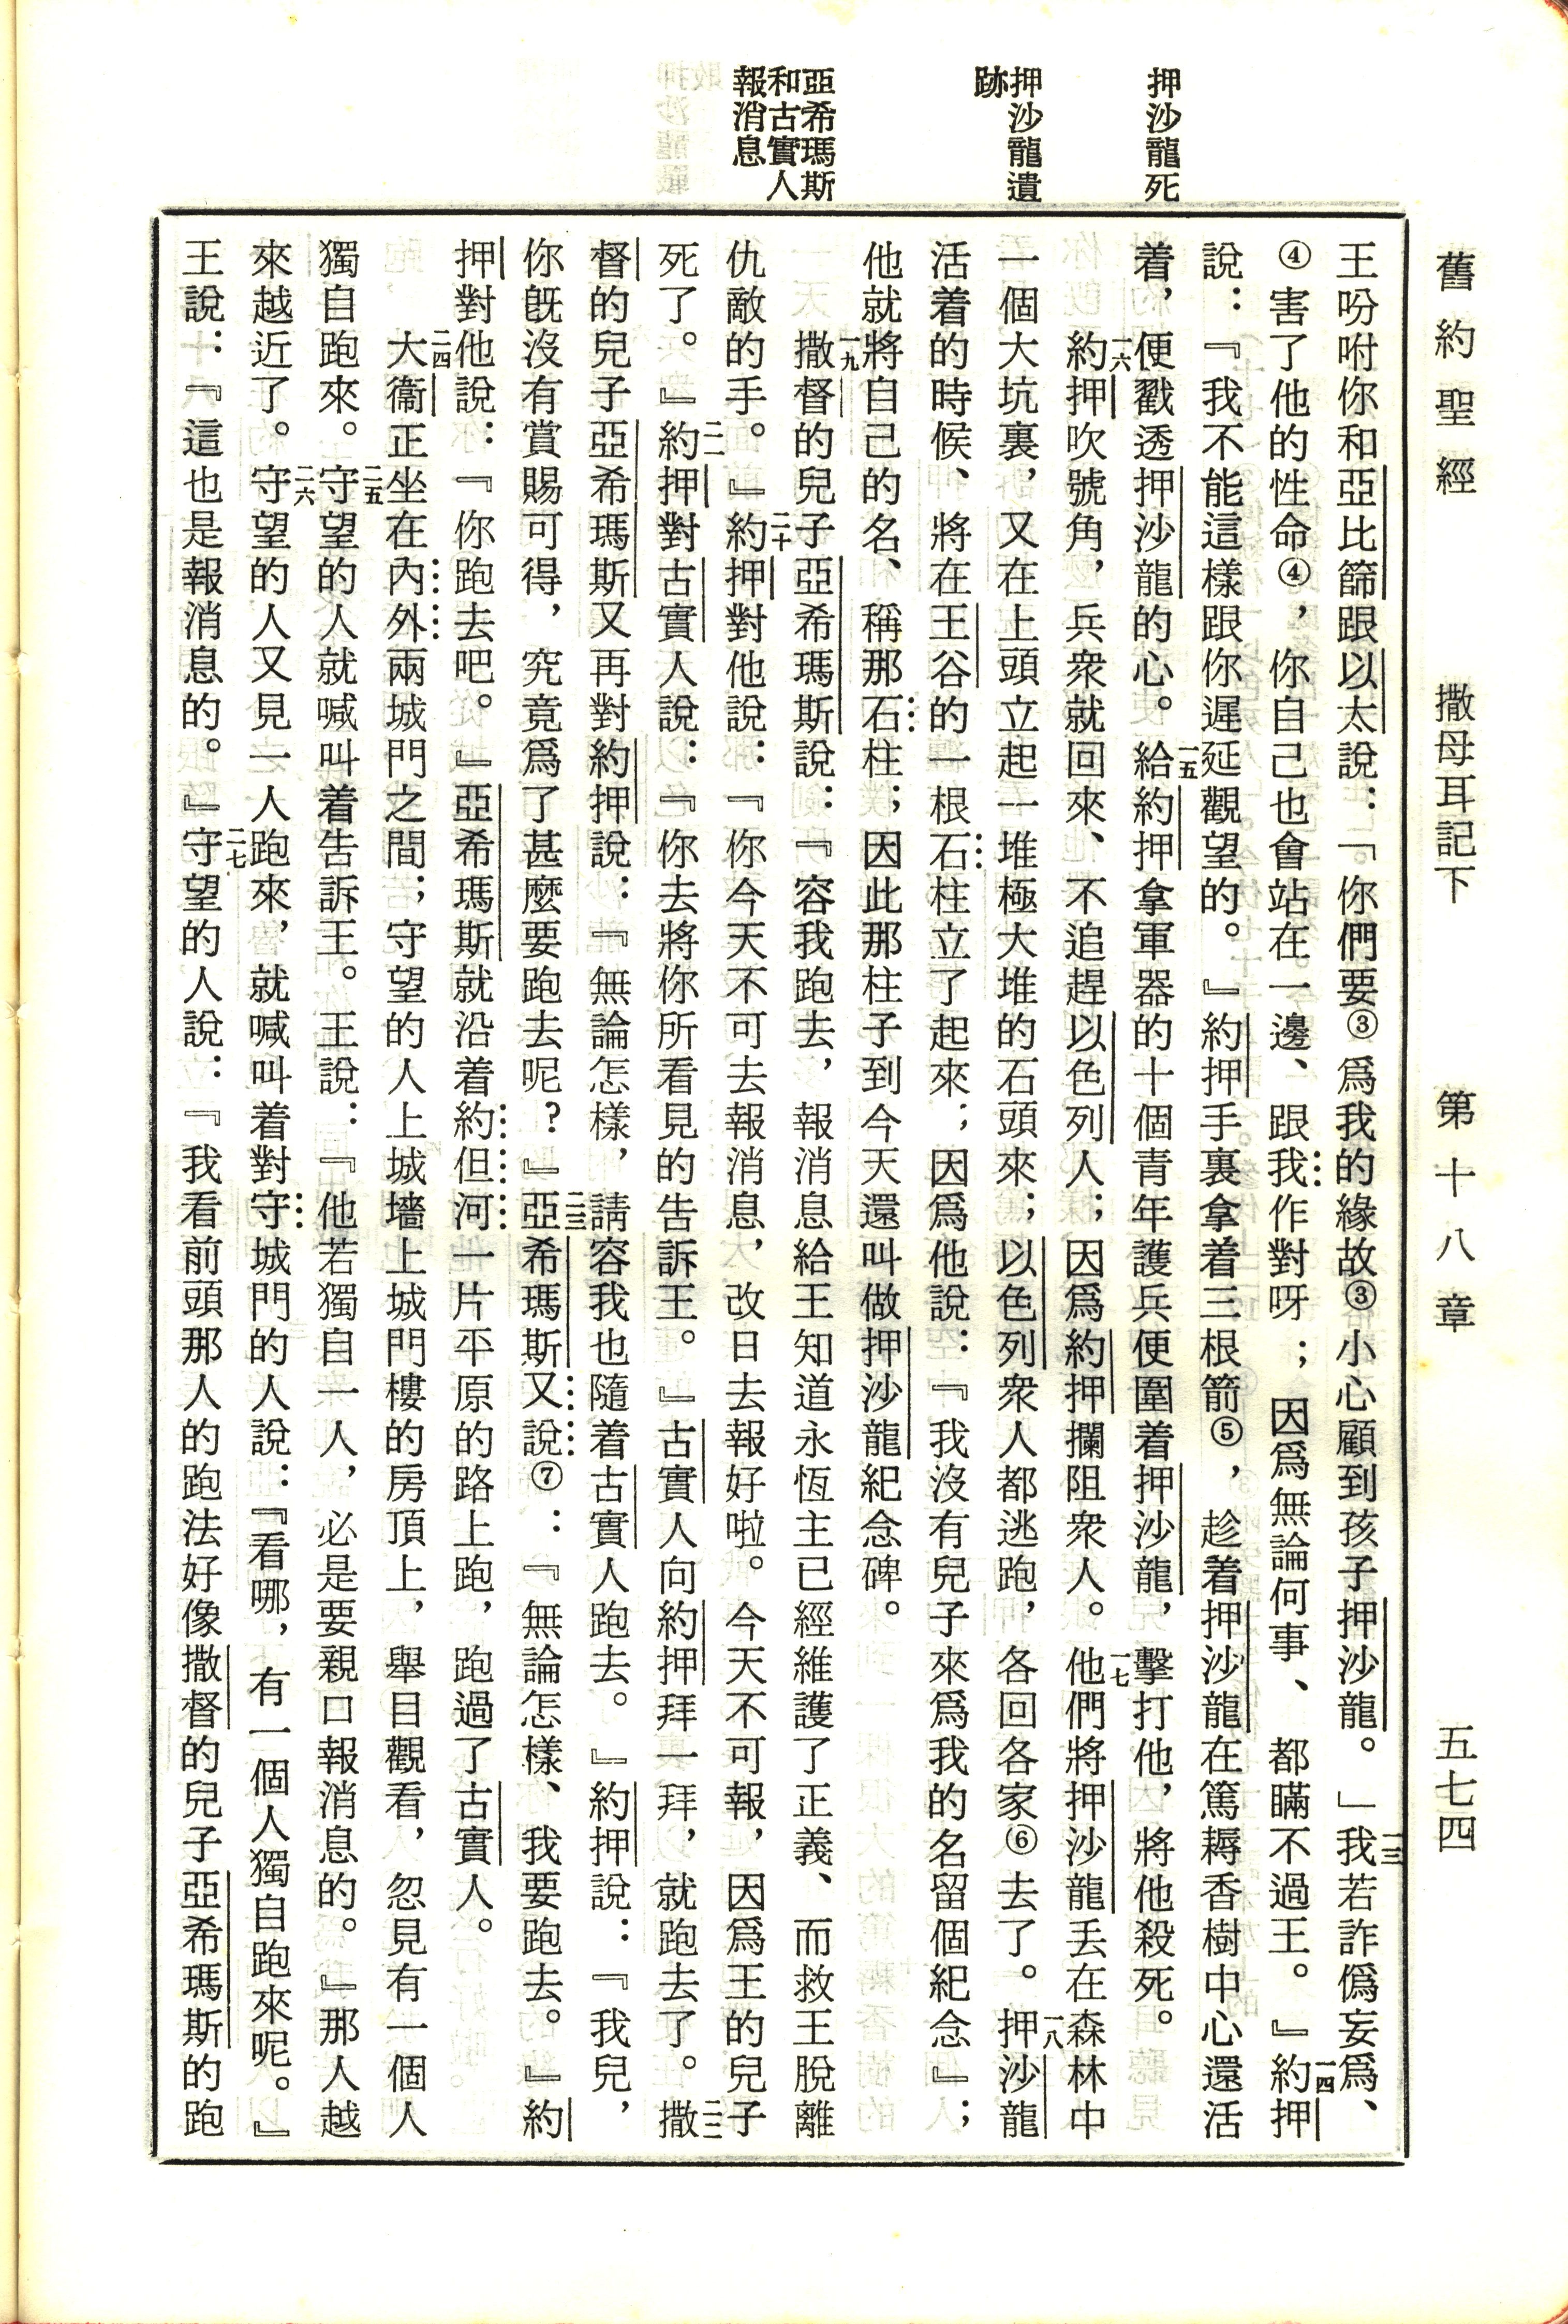 舊約聖經 撒母耳記下 第十八章 五七四
押沙龍死
押沙龍遺
跡
亞希瑪斯
和古實人
報消息
王吩咐你和亞比篩跟以太說：「你們要③爲我的緣故③小心顧到孩子押沙龍。」一三我若詐僞妄爲、
④害了他的性命④，你自己也會站在一邊、跟我作對呀；因爲無論何事、都瞞不過王。』一四約押
說：『我不能這樣跟你遲延觀望的。』約押手裏拿着三根箭⑤，趁着押沙龍在篤耨香樹中心還活
着，便戳透押沙龍的心。一五給約押拿軍器的十個青年護兵便圍着押沙龍，擊打他，將他殺死。
一六約押吹號角，兵衆就回來、不追趕以色列人；因爲約押攔阻衆人。一七他們將押沙龍丟在森林中
一個大坑裏，又在上頭立起一堆極大堆的石頭來；以色列衆人都逃跑，各回各家⑥去了。一八押沙龍
活着的時候、將在王谷的一根石柱立了起來；因爲他說：『我沒有兒子來爲我的名留個紀念』；
他就將自己的名、稱那石柱；因此那柱子到今天還叫做押沙龍紀念碑。
一九撒督的兒子亞希瑪斯說：『容我跑去，報消息給王知道永恆主已經維護了正義、而救王脫離
仇敵的手。』二十約押對他說：『你今天不可去報消息，改日去報好啦。今天不可報，因爲王的兒子
死了。』二一約押對古實人說：『你去將你所看見的告訴王。』古實人向約押拜一拜，就跑去了。二二撒
督的兒子亞希瑪斯又再對約押說：『無論怎樣，請容我也隨着古實人跑去。』約押說：『我兒，
你旣沒有賞賜可得，究竟爲了甚麼要跑去呢？』二三亞希瑪斯又說⑦：『無論怎樣、我要跑去。』約
押對他說：『你跑去吧。』亞希瑪斯就沿着約但河一片平原的路上跑，跑過了古實人。
二四大衞正坐在內外兩城門之間；守望的人上城墻上城門樓的房頂上，舉目觀看，忽見有一個人
獨自跑來。二五守望的人就喊叫着告訴王。王說：『他若獨自一人，必是要親口報消息的。』那人越
來越近了。二六守望的人又見一人跑來，就喊叫着對守城門的人說：『看哪，有一個人獨自跑來呢。』
王說：『這也是報消息的。』二七守望的人說：『我看前頭那人的跑法好像撒督的兒子亞希瑪斯的跑